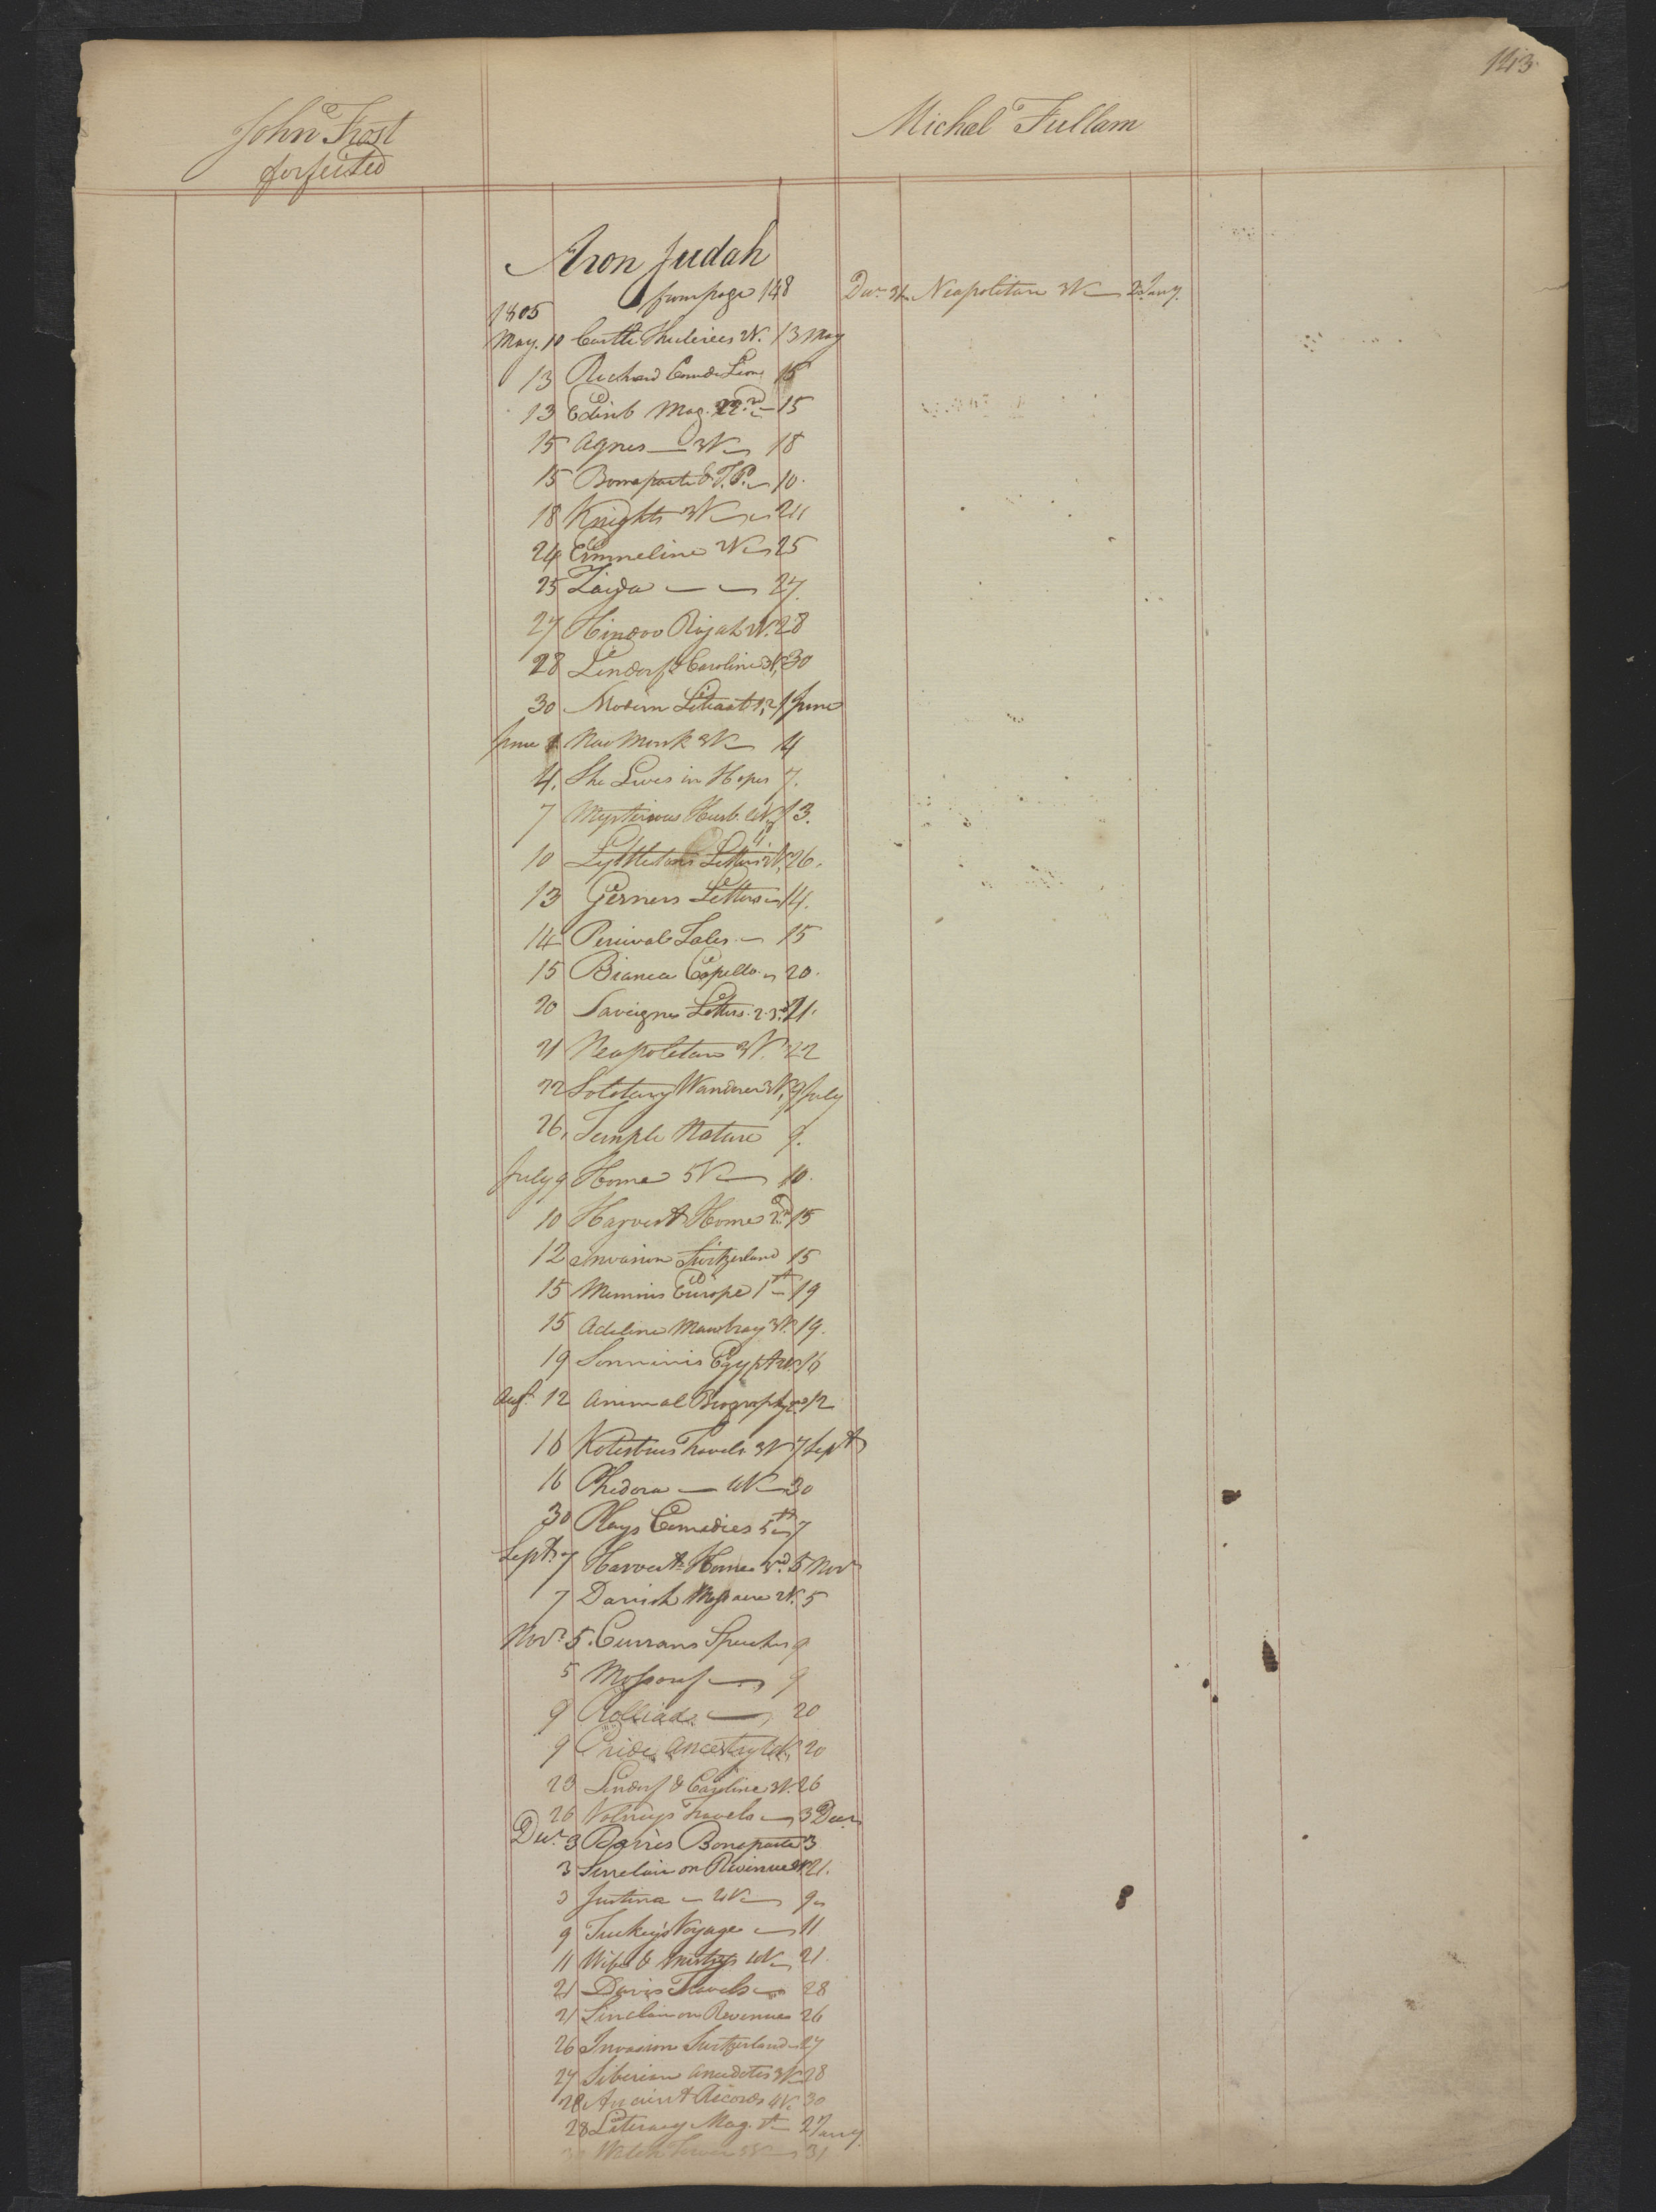 143
John Frost
forfeited
Aron Judah
from page 148
1805
May. 10 Castle Thuleries 2V. 13 May
13 Richard Coeur de Lion 15
13 Edinb Mag. 22nd 15
15 Agnes 3V 18
15 Bonaparte & T. P. 10.
18 Knights 3V 24
24 Emmeline 2V 25
25 Zaida 27.
27 Hindoo Rajah 2V. 28
28 Lindorf & Caroline 3V. 30
30 Modern Literat 1,2 1 June
June 1 New Monk 3V 4
4. She Lives in Hopes 7.
7 Mysterious Husb. 4V 13.
10 Lyttletons Letters 2V. 26.
13 Gesners Letters 14.
14 Percivals Tales 15
15 Bianca Capello 20.
20 Saveignes Letters. 2.3d 21.
21 Neapolitan 3V. 22
22 Solotary Wanderer 3V, 9 July
26. Temple Nature 9.
July 9 Home 5V 10.
10 Harvest Home 2d 15
12 Invasion Switzerland 15
15 Memoirs Europe 1st 19
15 Adeline Mawbray 3V. 19.
19 Sonninis Egypt 2V. 16
Augt. 12 Animal Biography 2d 12
16 Kotesbues Travels 3V 7 Sept
16 Phedora 4V 30
30 Plays Comedies 5th 7
Sept. 7 Harvest Home 3rd. 5 Nov
7 Danish Massacre 2V. 5
Novr 5. Currans Speeches 9
5 9
9 Rolliad 20
9 Pride Ancestry 4V, 20
23 Lindorf & Caroline 3V. 26
26 Volneys Travels 3 Decr
Decr. 3 Bonaparte 3
3 Sinclair on Revenue 21.
3 Justina 2V 9
9 Tuckeys Voyage 11
11 Wife & Mistress 4V 21.
21 Davis Travels 28
21 Sinclair on Revenues 26
26 Invasion Switzerland 27
27 Siberian Anecdotes 3V 28
28 Ancient Records 4V. 30
28 Literary Mag. 2 Jany.
Watch Tower 31
Michael Fullam
Decr. 31 Neapolitan 3V 2 Jany.